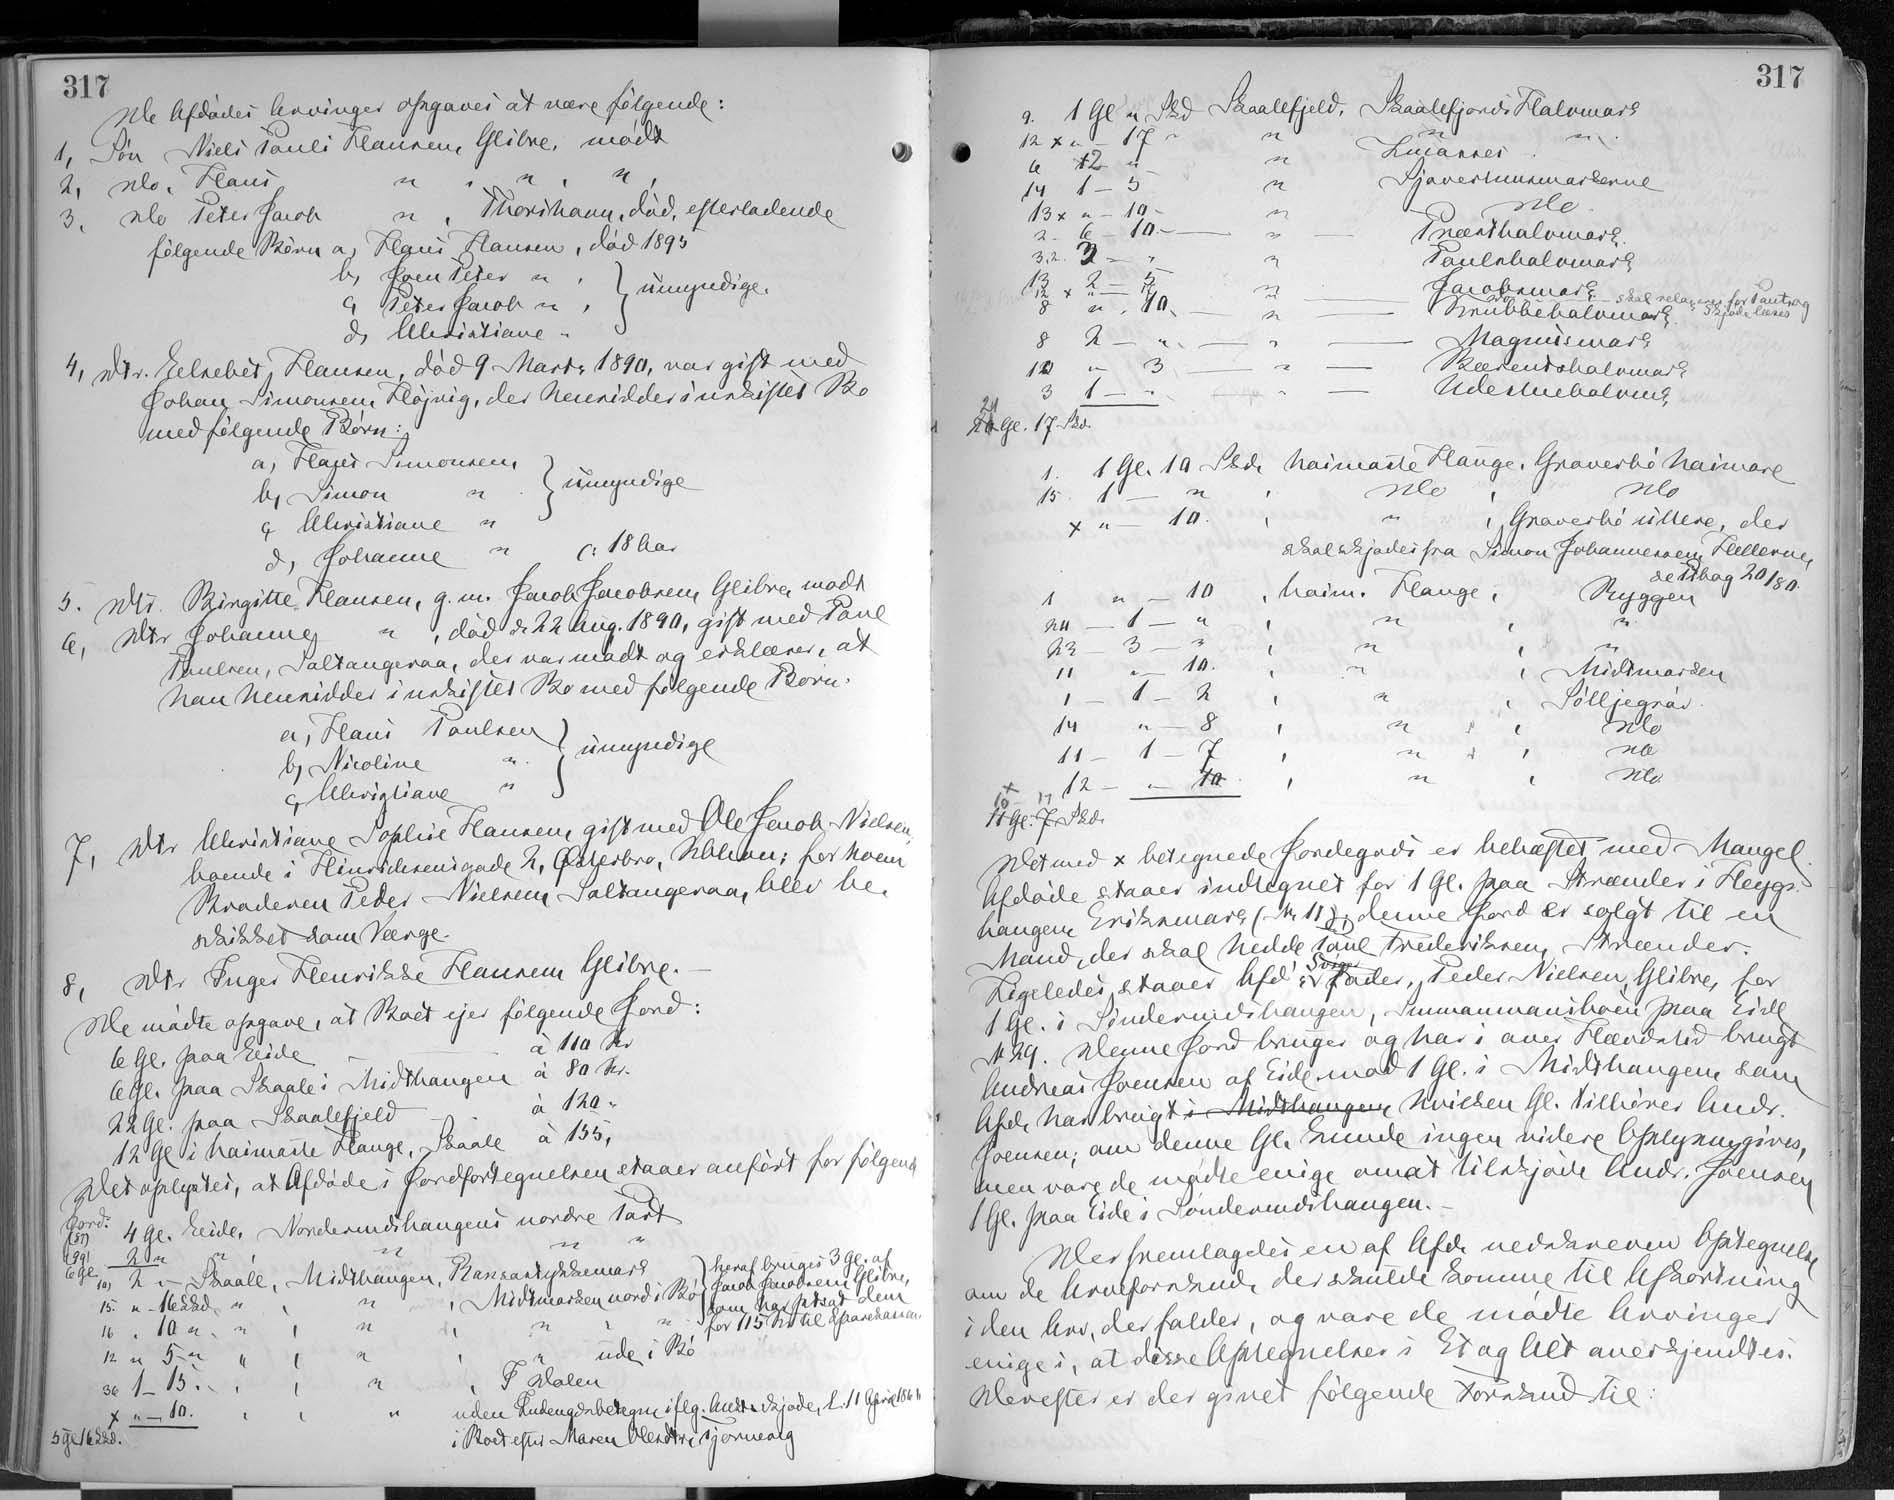 317
De Afdødes Arvinger opgaves at være følgende:
1, Søn Niels Pauli Hansen, Glibre, mødt
2, do, Hans " , " , " ,
3, do Peter Jacob " , Thorshavn, død, efterladende
følgende Børn a, Hans Hansen, død 1895
b, Joen Peter " ,
c, Peter Jacob " , } umyndige.
d, Christiane "
4, Dtr. Elsebet Hansen, død 9 Marts 1890, var gift med
Johan Simonsen, Højvig, der hensidder i uskiftet Bo
med følgende Børn:
a, Hans Simonsen,
b, Simon " } umyndige
c, Christiane "
d, Johanne " c: 18 Aar
5. Dtr. Birgitte Hansen, g. m. Jacob Jacobsen, Glibre, mødt
6, Dtr Johanne " , død d. 22 Aug. 1890, gift med Poul
Poulsen, Saltangeraa, der var mødt og erklærer, at
han hensidder i uskiftet Bo med følgende Børn:
a, Hans Poulsen
b, Nicoline " } umyndige
c, Christiane "
7, Dtr Christiane Sophie Hansen, gift med Ole Jacob Nielsen,
boende i Hinrichsensgade 2, Østerbro, Kbhvn; for hvem
Broderen Peder Nielsen, Saltangeraa, blev be-
skikket som Værge.
8, Dtr Inger Henrikke Hansen, Glibre. —
De mødte opgave, at Boet ejer følgende Jord:
6 Gl. paa Eide à 110 Kr
6 Gl. paa Skaale i Midthangen à 80 Kr.
22 Gl. paa Skaalefjeld à 120 "
12 Gl i haimaste Hange, Skaale à 155,
Det oplystes, at Afdøde i Jordfortegnelsen staaer anført for følgende
Jord:
4 Gl. Eide, Norderendshangens nordre Part
2 " " , " " "
6 Gl.
10, 2 " – Skaale, Midthangen, heraf bruges 3 Gl. af
15. " – 16 Skd. " , " , Midtmarken nord i Bø Jacob Jacobsen, Glibre,
16 . 10 " . " , " , " " " som har
for 115 Kr til Sparekassen
12 " 5 – " " , " , " ude i Bø
36 1 – 15. " , " , I Dalen
x " – 10. " , " uden
5 Gl 16 Skd. i Boet efter Maren
317
9. 1 Gl " Skd Skaalefjeld, Skaalefjords Halvmark
12 x " – 17 " " " "
6 12 " "
14 1 – 5 "
13 x " – 10 – " do
2 – 6 – 10. — " — Præsthalvmark
3,2. 3 – " " Poulshalvmark
13 2 – 5 " Jacobsmark
12 x " "
8 " . 10. — " — Krubbehalvmark
8 2 – " . — " — Magnusmark
10 " 3 — " — Bærentshalvmark
3 1 – " " —
Gl. 17 Skd.
1. 1 Gl. 10 Skd. haimaste Hange, Graverbø haimare
15. 1 — " , do , do
x " – 10. , " , Graverbø uttere, der
skal skjødes fra Simon Johannessen, Hellerne,
se Tbog 20/180.
1 " – 10 , haim. Hange, Ryggen
20 – 1 – " , " , "
23 – 3 – " , " , "
11 " – 10. , " , Midtmarken
1 – 1 – 2 , " ,
14 " – 8 , " , do
11 – 1 – 7 , " , do
x 12 – " – 10 . , " , do
Det med x betegnede Jordegods er behæftet med Mangel.
Afdøde staaer indtegnet for 1 Gl. paa Strænder i
hangen, Eriksmark (Nr. 11); denne Jord er solgt til en
Mand, der skal hedde Poul Frederiksen, Strænder.
Ligeledes staaer Afd's Svigerfader, Peder Nielsen, Glibre, for
1 Gl. i Sønderendshangen, paa Eide
№ 29. Denne Jord bruges og har i over Hævdstid brugt
Andreas Joensen af Eide mod 1 Gl. i Midthangen, som
Afd. har brugt i Midthangen, hvilken Gl. tilhører Andr.
Joensen; om denne Gl. kunde ingen videre Oplysning gives,
men vare de mødte enige om at tilskjøde Andr. Joensen
1 Gl. paa Eide i Sønderendshangen. –
Der fremlagdes en af Afd. nedskreven Optegnelse
om de Arveforskud, der skulde komme til Afkortning
i den Arv, der falder, og vare de mødte Arvinger
enige i, at disse Optegnelser i Et og Alt anerkjendtes.
Derefter er der givet følgende Forskud til: